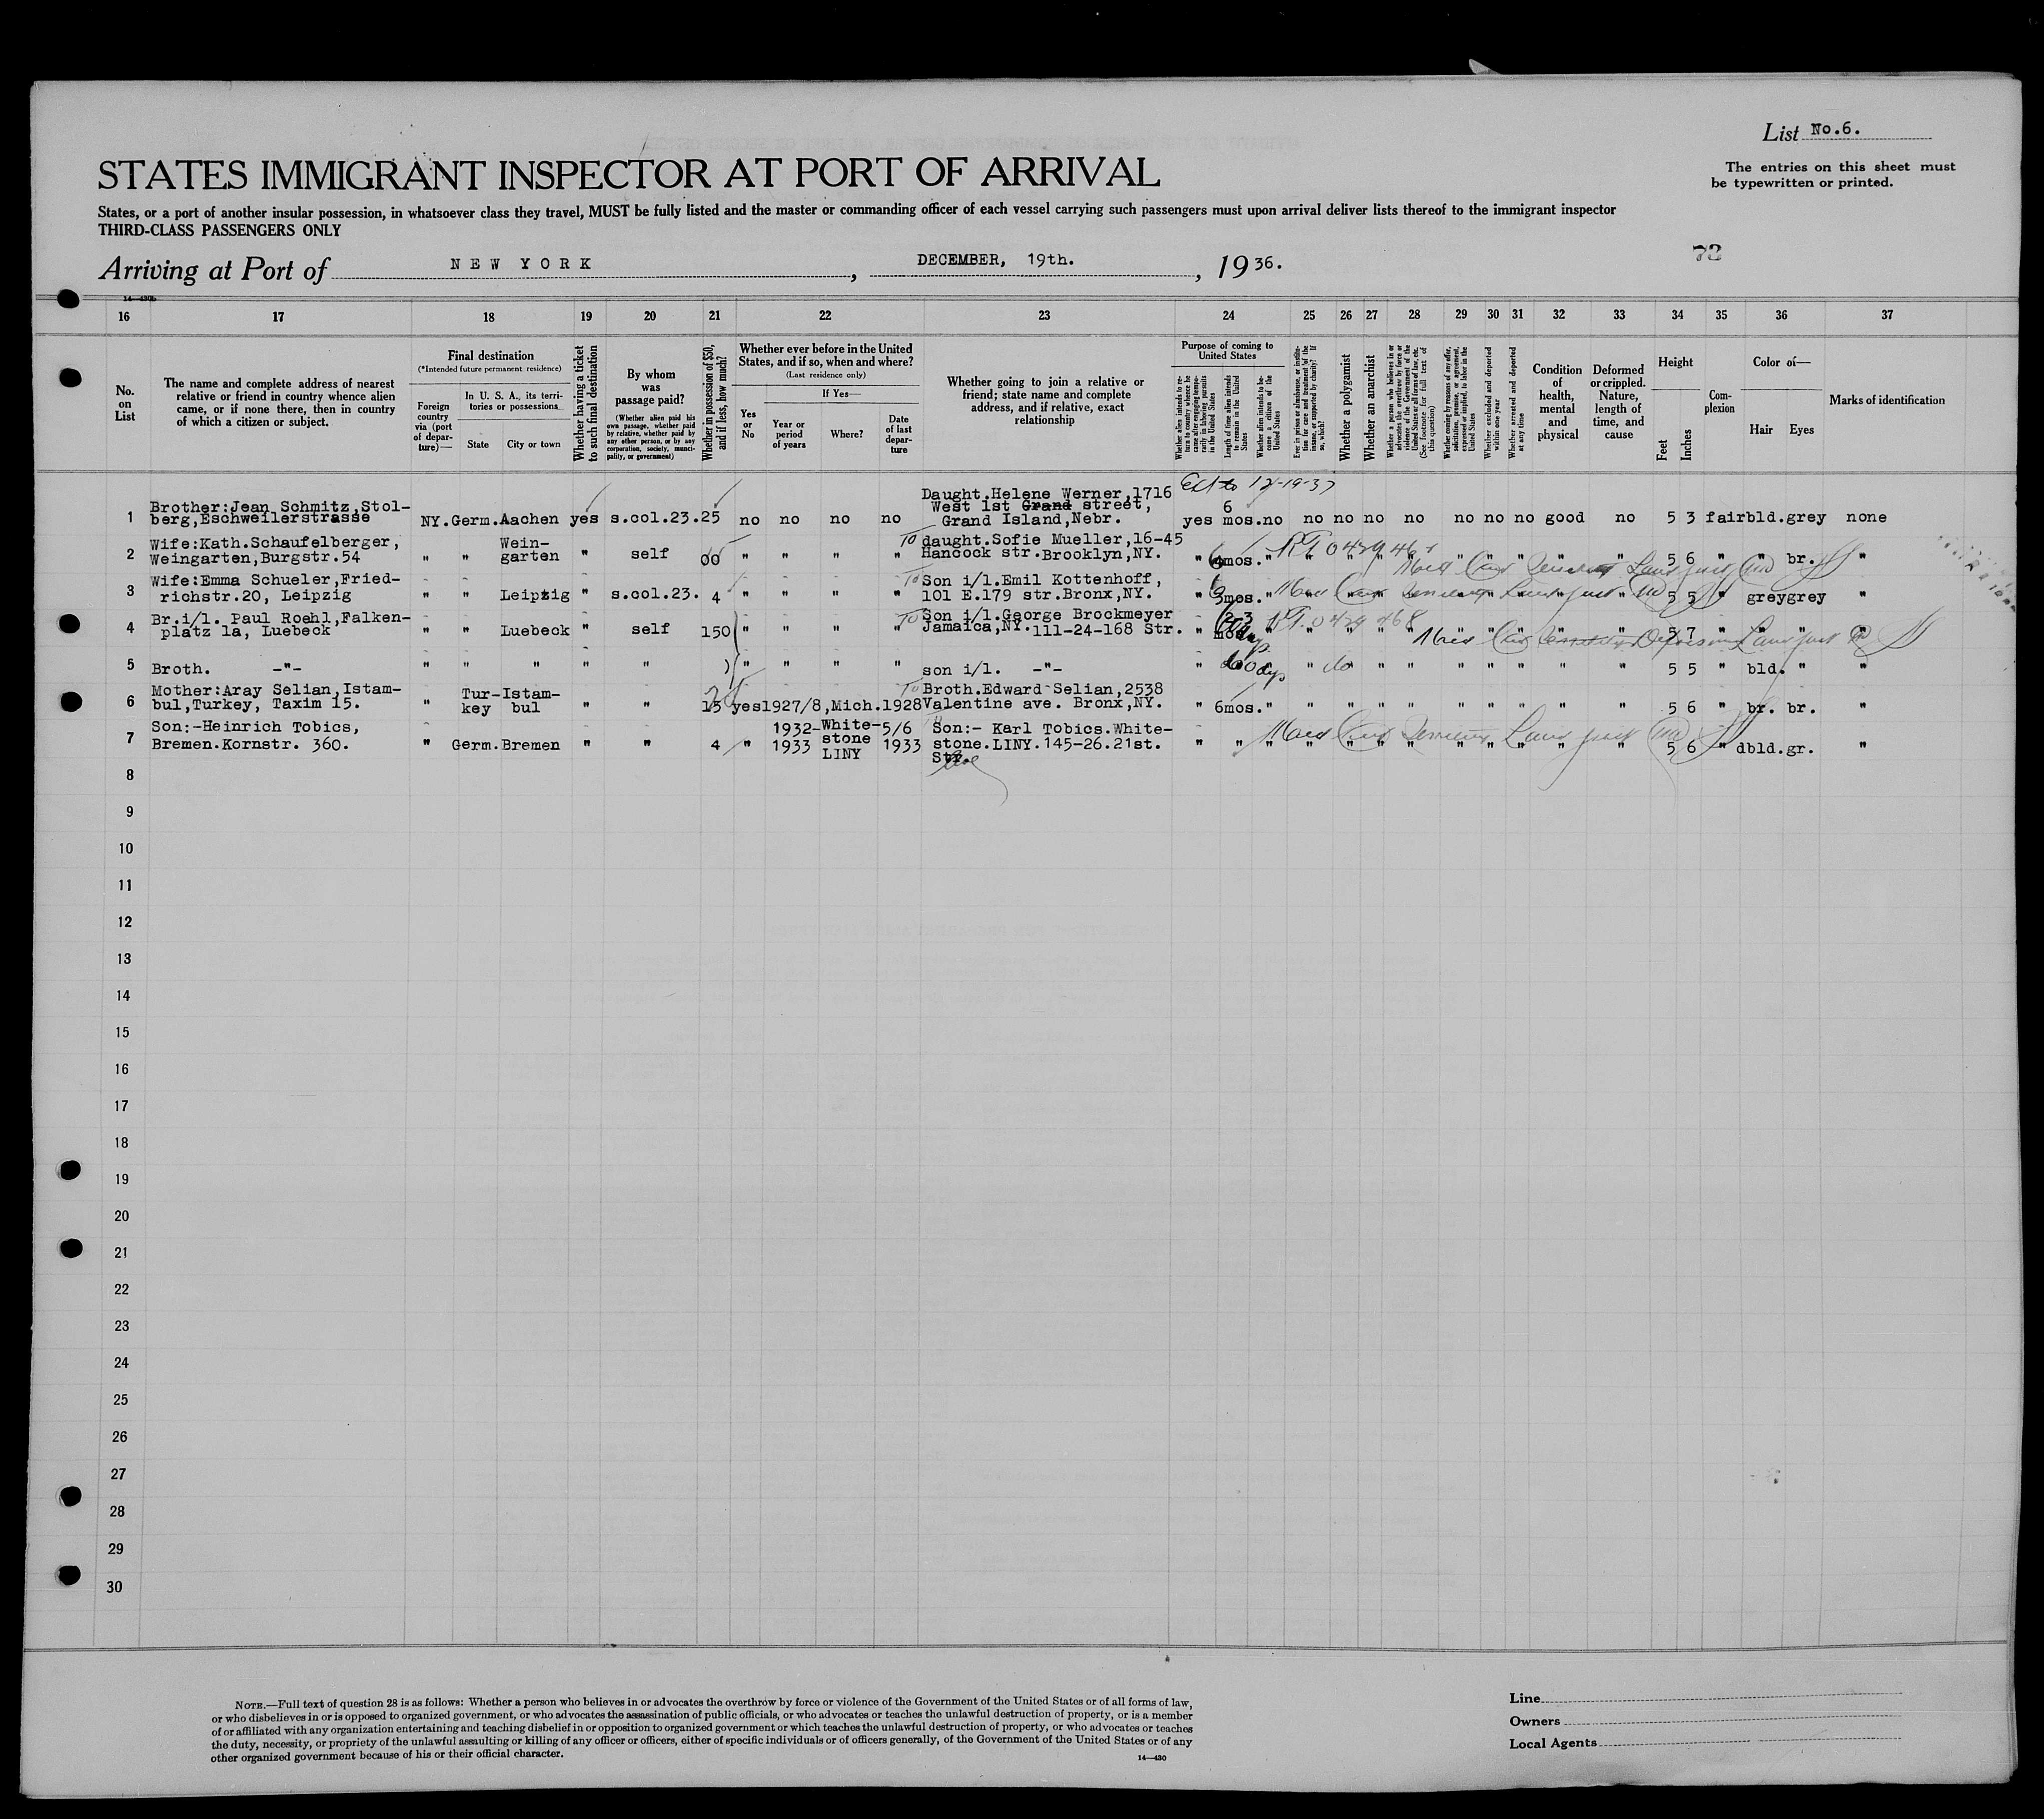 List No.6.
STATES IMMIGRANT INSPECTOR AT PORT OF ARRIVAL
The entries on this sheet must
be typewritten or printed.
States, or a port of another insular possession, in whatsoever class they travel, MUST be fully listed and the master or commanding officer of each vessel carrying such passengers must upon arrival deliver lists thereof to the immigrant inspector
THIRD-CLASS PASSENGERS ONLY
Arriving at Port of NEW YORK, DECEMBER, 19th., 1936.
14—430b
16 17 18 19 20 21 22 23 24 25 26 27 28 29 30 31 32 33 34 35 36 37
No. on List
The name and complete address of nearest
relative or friend in country whence alien
came, or if none there, then in country
of which a citizen or subject.
Final destination
(*Intended future permanent residence)
Foreign country via (port of departure)—
In U. S. A., its territories or possessions
State
City or town
Whether having a ticket to such final destination
By whom was passage paid?
(Whether alien paid his own passage, whether paid by relative, whether paid by any other person, or by any corporation, society, municipality, or government)
Whether in possession of $50, and if less, how much?
Whether ever before in the United States, and if so, when and where?
(Last residence only)
Yes or No
If Yes—
Year or period of years
Where?
Date of last departure
Whether going to join a relative or
friend; state name and complete
address, and if relative, exact
relationship
Purpose of coming to United States
Whether alien intends to return to country whence he came after engaging temporarily in laboring pursuits in the United States
Length of time alien intends to remain in the United States
Whether alien intends to become a citizen of the United States
Ever in prison or almshouse, or institution for care and treatment of the insane, or supported by charity? If so, which?
Whether a polygamist
Whether an anarchist
Whether a person who believes in or advocates the overthrow by force or violence of the Government of the United States or all forms of law, etc. (See footnote for full text of this question)
Whether coming by reason of any offer, solicitation, promise, or agreement, expressed or implied, to labor in the United States
Whether excluded and deported within one year
Whether arrested and deported at any time
Condition of health, mental and physical
Deformed or crippled. Nature, length of time, and cause
Height
Feet
Inches
Complexion
Color of—
Hair
Eyes
Marks of identification
Ext to 12-19-37
1 Brother:Jean Schmitz,Stol-
berg,Eschweilerstrasse NY. Germ. Aachen yes s.col.23. 25 no no no no
Daught.Helene Werner,1716
West 1st Grand street,
Grand Island,Nebr. yes 6 mos. no no no no no no no no good no 5 3 fair bld. grey none
2 Wife:Kath.Schaufelberger,
Weingarten,Burgstr.54 " " Wein-
garten " self 00 " " " "
daught.Sofie Mueller,16-45
Hancock str.Brooklyn,NY. " mos. " " " " " " " " " " 5 6 " " br. "
3 Wife:Emma Schueler,Fried-
richstr.20, Leipzig " " Leipzig " s.col.23. 4 " " " "
Son i/l.Emil Kottenhoff,
101 E.179 str.Bronx,NY. " 3mos. " " " " " " " " " " 5 5 " grey grey "
4 Br.i/l. Paul Roehl,Falken-
platz 1a, Luebeck " " Luebeck " self 150 " " " "
Son i/l.George Brockmeyer
Jamaica,NY.111-24-168 Str. " 2-3 mos " " " " " " " " " " 5 7 " " " "
5 Broth. -"- " " " " " " " " "
son i/l. -"- " 60 dys " do " " " " " " " " 5 5 " bld. " "
6 Mother:Aray Selian,Istam-
bul,Turkey, Taxim 15. " Tur-
key Istam-
bul " " 15 yes 1927/8,Mich.1928
Broth.Edward Selian,2538
Valentine ave. Bronx,NY. " 6mos. " " " " " " " " " " 5 6 " br. br. "
7 Son:-Heinrich Tobics,
Bremen.Kornstr. 360. " Germ. Bremen " " 4 " 1932-
1933 White-
stone
LINY 5/6
1933
Son:- Karl Tobics.White-
stone.LINY.145-26.21st.
Str. " " " " " " " " " " " " 5 6 " dbld. gr. "
8
9
10
11
12
13
14
15
16
17
18
19
20
21
22
23
24
25
26
27
28
29
30
NOTE.—Full text of question 28 is as follows: Whether a person who believes in or advocates the overthrow by force or violence of the Government of the United States or of all forms of law,
or who disbelieves in or is opposed to organized government, or who advocates the assassination of public officials, or who advocates or teaches the unlawful destruction of property, or is a member
of or affiliated with any organization entertaining and teaching disbelief in or opposition to organized government or which teaches the unlawful destruction of property, or who advocates or teaches
the duty, necessity, or propriety of the unlawful assaulting or killing of any officer or officers, either of specific individuals or of officers generally, of the Government of the United States or of any
other organized government because of his or their official character.
14—430
Line
Owners
Local Agents